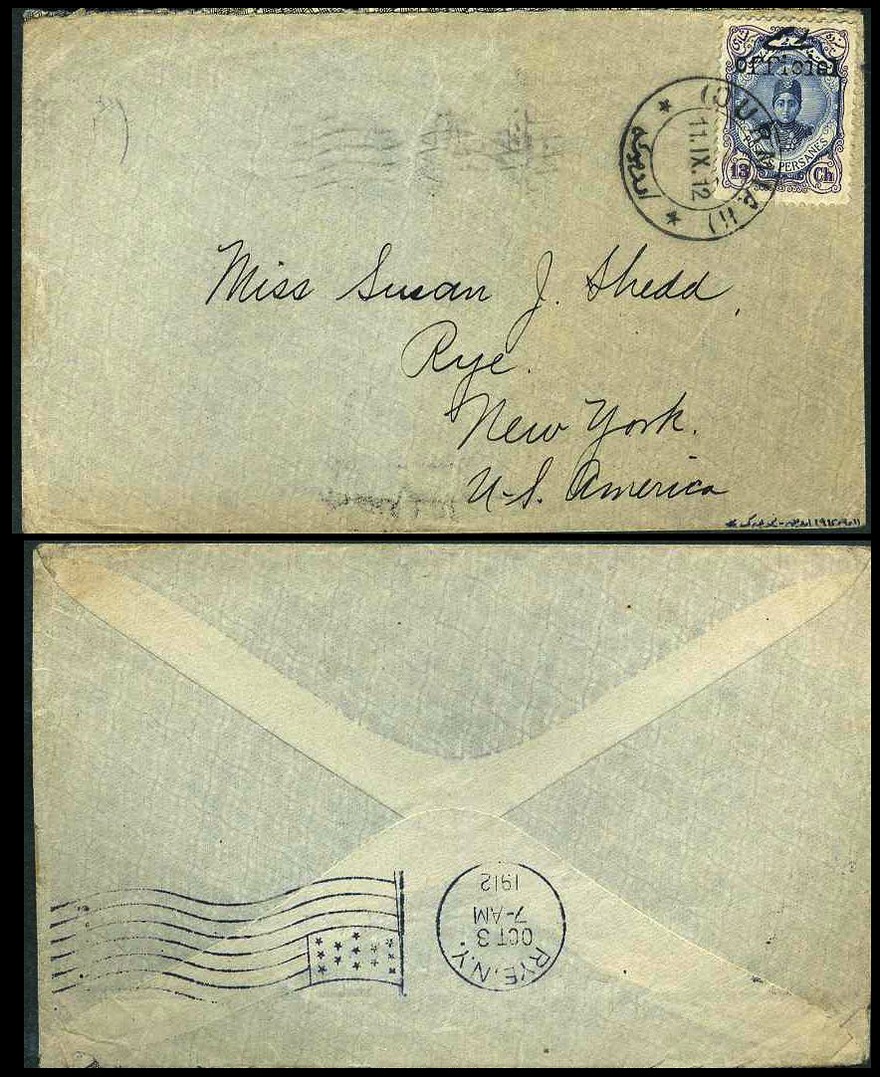 Official
POSTES PERSANES
13 Ch
11.IX.12
Miss Susan J. Shedd,
Rye.
New York.
U.S. America
RYE, N.Y.
OCT 3
7-AM
1912